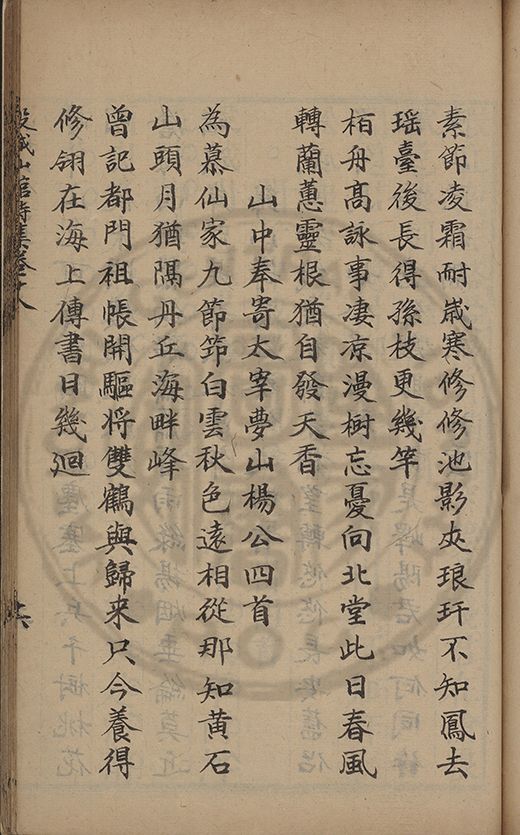 素節凌霜耐嵗寒修修池影夾琅玕不知鳳去
瑶臺後長得孫枝更幾竿
栢舟髙詠事凄凉漫樹忘憂向北堂此日春風
轉蘭蕙靈根猶自發天香
山中奉寄太宰夢山楊公四首
為慕仙家九節笻白雲秋色遠相從那知黄石
山頭月猶隔丹丘海畔峰
曾記都門祖帳開驅将雙鶴與歸来只今養得
修翎在海上傳書日幾迴
榖城山館詩集卷十八